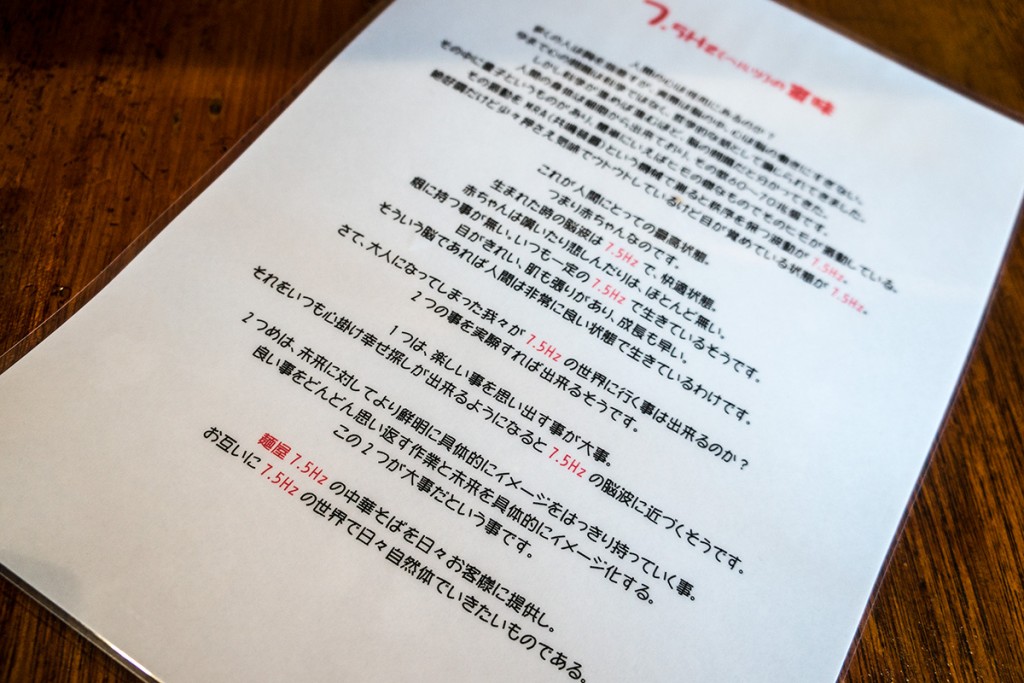 7.5Hz(ヘルツ)の意味
人間の心は何処にあるのか？
多くの人は胸を指すが、実際は脳の中、心は脳の働きにすぎない。
今まで心の問題は科学ではなく、哲学的な話として論じられてきました。
しかし科学が進めば進むほど、脳の問題だと分かってきた。
人間の身体は細胞から出来ており、その数60〜70兆個です。
その中に量子というものがあり、簡単にいえばヒモの様なものでそのヒモが振動している。
その振動を MRA(共鳴装置)という機械で測ると秩序を保つ波動が 7.5Hz。
絶好調だけど少々押さえ気味でウトウトしているけど目が覚めている状態が 7.5Hz。
これが人間にとっての最高状態。
つまり赤ちゃんなのです。
生まれた時の脳波は 7.5Hz で、快適状態。
赤ちゃんは嘆いたり悲しんだりは、ほとんど無い。
根に持つ事が無い、いつも一定の 7.5Hz で生きているそうです。
目がきれい、肌も張りがあり、成長も早い。
そういう脳であれば人間は非常に良い状態で生きているわけです。
さて、大人になってしまった我々が 7.5Hz の世界に行く事は出来るのか？
2つの事を実験すれば出来るそうです。
1つは、楽しい事を思い出す事が大事。
それをいつも心掛け幸せ探しが出来るようになると 7.5Hz の脳波に近づくそうです。
2つめは、未来に対してより鮮明に具体的にイメージをはっきり持っていく事。
良い事をどんどん思い返す作業と未来を具体的にイメージ化する。
この2つが大事だという事です。
麺屋 7.5Hz の中華そばを日々お客様に提供し。
お互いに 7.5Hz の世界で日々自然体でいきたいものである。